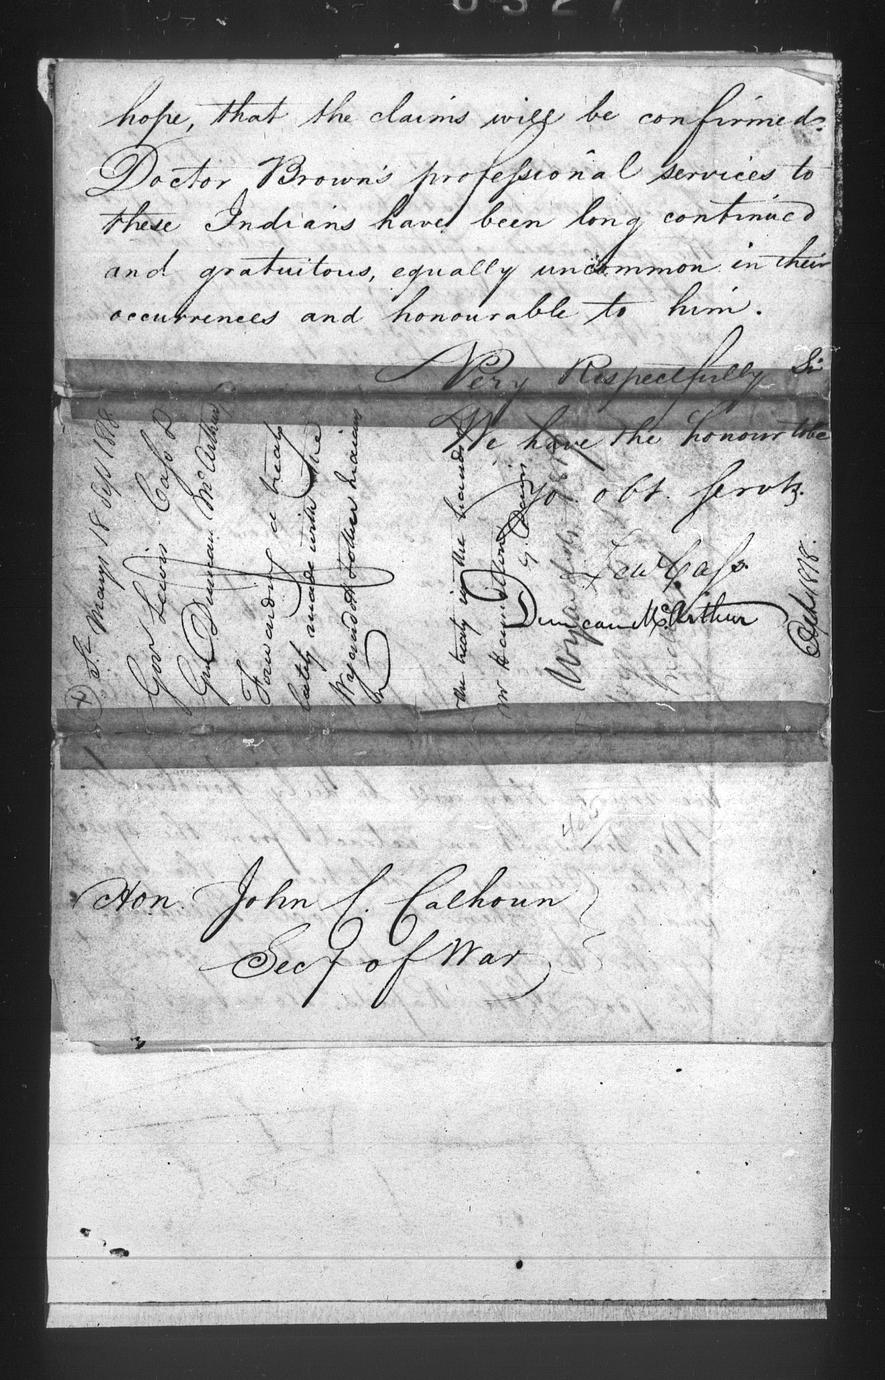 hope, that the claims will be confirmed.
Doctor Brown's professional services to
these Indians have been long continued
and gratuitous, equally uncommon in their
occurrences and honourable to him.
Very Respectfully Sir
We have the honour to be
yo obt. servts.
Lew Cass
Duncan McArthur
St Marys 18 Sept 1818
Gov Lewis Cass &
Gnl Duncan McArthur
Forwarding a treaty
lately made with the
Wyandot & other Indians
the treaty in the hands
Mr Hamilton
Wyandots
Octr 1818.
Hon John C. Calhoun
Secy of War